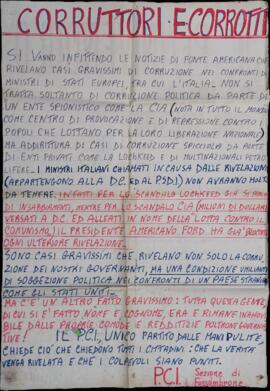 CORRUTTORI E CORROTTI
SI VANNO INFITTENDO LE NOTIZIE DI FONTE AMERICANA CHE
RIVELANO CASI GRAVISSIMI DI CORRUZIONE NEI CONFRONTI DI
MINISTRI DI STATI EUROPEI, TRA CUI L'ITALIA. NON SI
TRATTA SOLTANTO DI CORRUZIONE POLITICA DA PARTE DI
UN ENTE SPIONISTICO COME LA CIA (NOTA IN TUTTO IL MONDO
COME CENTRO DI PROVOCAZIONE E DI REPRESSIONE CONTRO
POPOLI CHE LOTTANO PER LA LORO LIBERAZIONE NAZIONALE)
MA ADDIRITTURA DI CASI DI CORRUZIONE SPICCIOLA DA PARTE
DI ENTI PRIVATI COME LA LOCKHEED E DI MULTINAZIONALI PETRO-
LIFERE. I MINISTRI ITALIANI CHIAMATI IN CAUSA DALLE RIVELAZIONI
(APPARTENGONO ALLA D.C. ED AL PSDI) NON AVRANNO MOLTO
DA TEMERE. INFATTI PER LO SCANDALO LOCKHEED GIÀ SI PARLA
DI INSABBIAMENTI, MENTRE PER LO SCANDALO CIA (MILIONI DI DOLLARI
VERSATI A D.C. ED ALLEATI IN NOME DELLA "LOTTA CONTRO IL
COMUNISMO), IL PRESIDENTE AMERICANO FORD HA GIÀ
OGNI ULTERIORE RIVELAZIONE.
SONO CASI GRAVISSIMI CHE RIVELANO NON SOLO LA CORRU-
ZIONE DEI NOSTRI GOVERNANTI, MA UNA CONDIZIONE UMILIANTE
DI SOGGEZIONE POLITICA NEI CONFRONTI DI UN PAESE STRANIERO
COME GLI STATI UNITI.
MA C'E' UN ALTRO FATTO GRAVISSIMO: TUTTA QUESTA GENTE,
DI CUI SI E' FATTO NOME E COGNOME, ERA E RIMANE INAMOVI-
BILE DALLE PROPRIE COMODE E REDDITIZIE POLTRONE GOVERNA-
TIVE!
IL P.C.I., UNICO PARTITO DALLE MANI PULITE,
CHIEDE CIO' CHE CHIEDONO TUTTI I CITTADINI: CHE LA VERITA'
VENGA RIVELATA E CHE I COLPEVOLI SIANO PUNITI.
P.C.I. Sezione di
Fossombrone